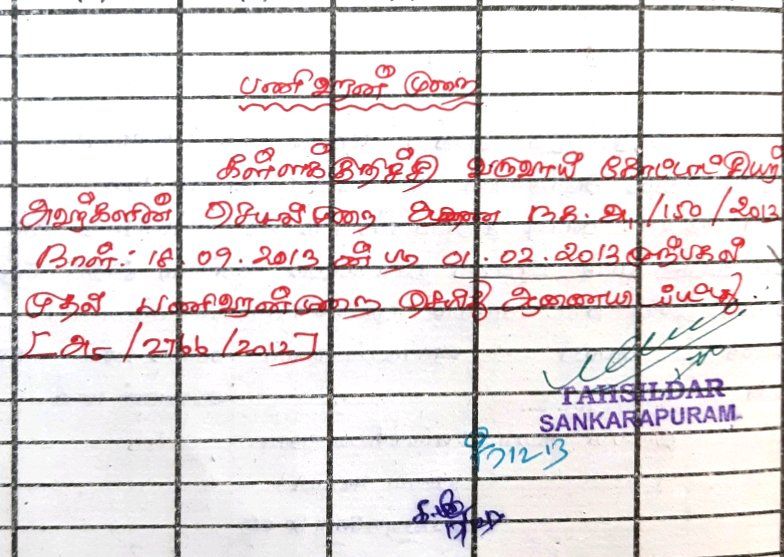 பணிவரன் முறை
கள்ளக்குறிச்சி வருவாய் கோட்டாட்சியர்
அவர்களின் செயல்முறை ஆணை ந.க.அ1/150/2013
நாள்: 18.09.2013 ன் படி 01.02.2013 முற்பகல்
முதல் பணிவரன்முறை செய்து ஆணையிடப்பட்டது.
[அ5/2766/2012]
TAHSILDAR
SANKARAPURAM